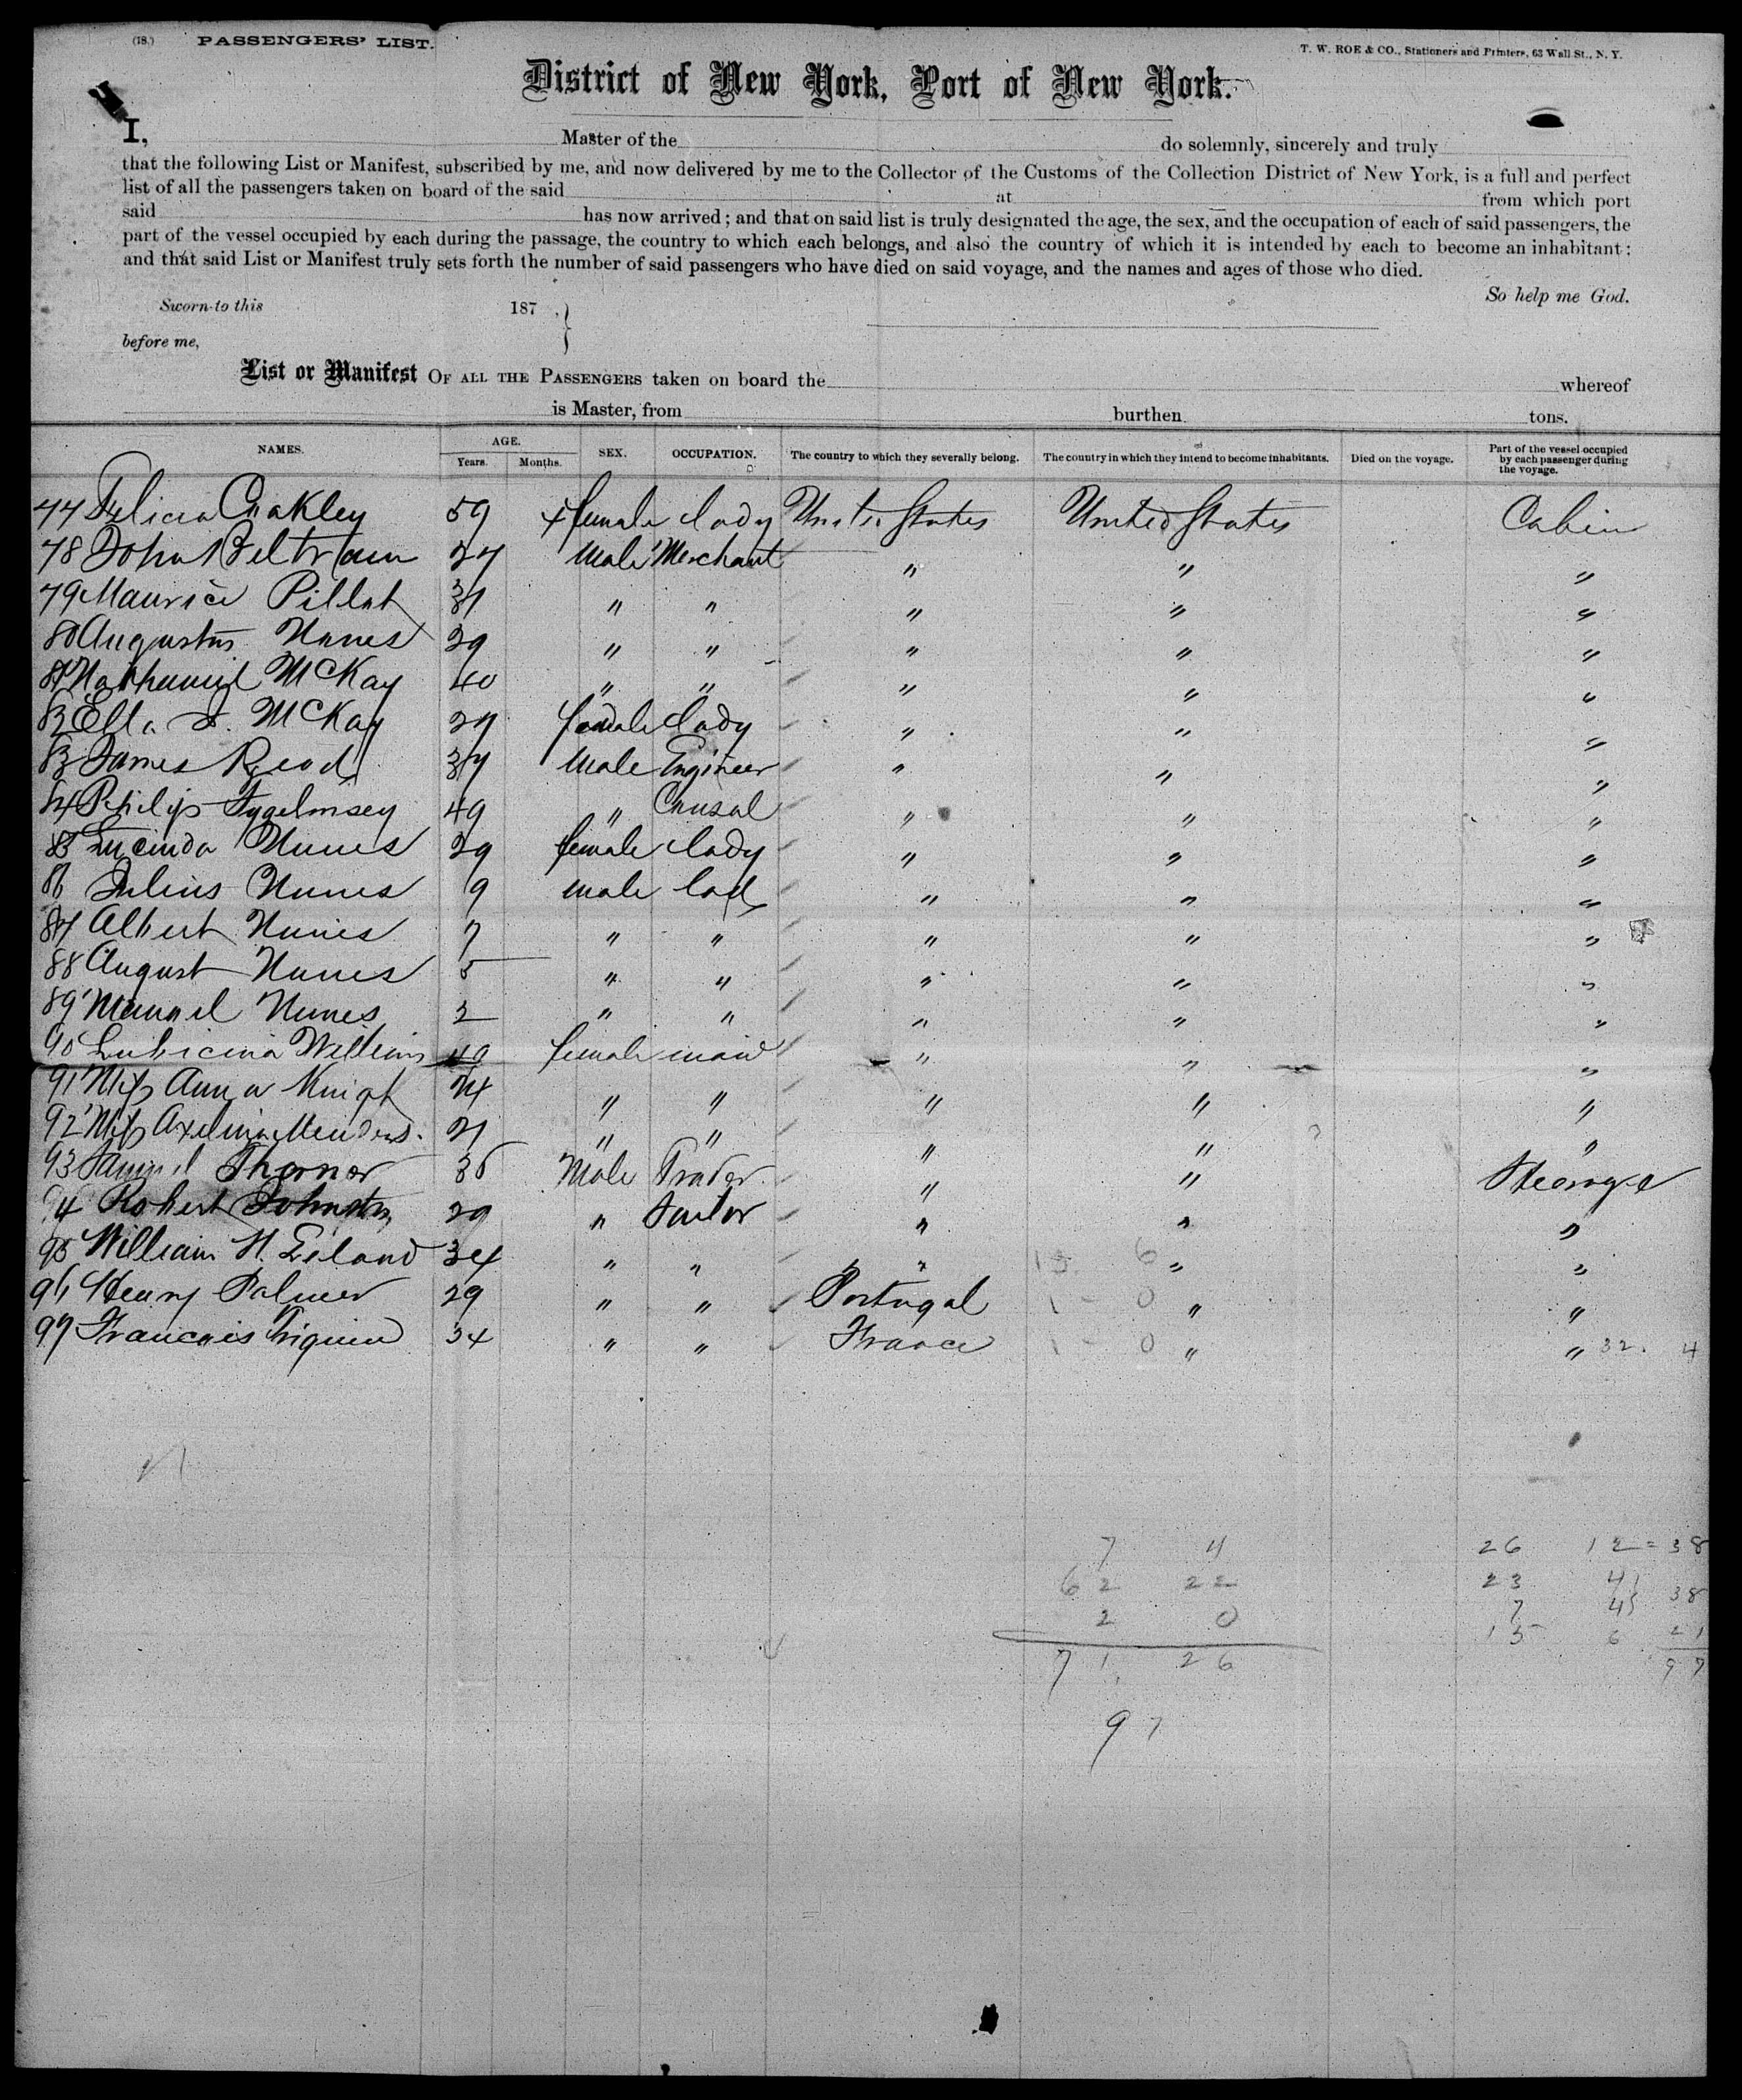 (18.) PASSENGERS' LIST.
T. W. ROE & CO., Stationers and Printers, 63 Wall St., N. Y.
District of New York, Port of New York.
I, Master of the do solemnly, sincerely and truly
that the following List or Manifest, subscribed by me, and now delivered by me to the Collector of the Customs of the Collection District of New York, is a full and perfect
list of all the passengers taken on board of the said at from which port
said has now arrived; and that on said list is truly designated the age, the sex, and the occupation of each of said passengers, the
part of the vessel occupied by each during the passage, the country to which each belongs, and also the country of which it is intended by each to become an inhabitant;
and that said List or Manifest truly sets forth the number of said passengers who have died on said voyage, and the names and ages of those who died.
So help me God.
Sworn to this 187 .
before me,
List or Manifest OF ALL THE PASSENGERS taken on board the whereof
is Master, from burthen tons.
NAMES. AGE. Years. Months. SEX. OCCUPATION. The country to which they severally belong. The country in which they intend to become inhabitants. Died on the voyage. Part of the vessel occupied by each passenger during the voyage.
77 Felicia Coakley 59 female lady United States United States Cabin
78 John Beltram 27 Male Merchant " " "
79 Maurice Pillot 31 " " " " "
80 Augustus Nunes 29 " " " " "
81 Nathaniel McKay 40 " " " " "
82 Ella McKay 27 female lady " " "
83 James Read 37 Male Engineer " " "
84 Philip 49 " " " "
85 Lucinda Nunes 29 female lady " " "
86 Julius Nunes 9 male lad " " "
87 Albert Nunes 7 " " " " "
88 August Nunes 5 " " " " "
89 Manuel Nunes 2 " " " " "
90 Williams 40 female maid " " "
91 Miss Anna Knight 24 " " " " "
92 Miss Axelina 21 " " " " "
93 Samuel 36 Male Trader " " Steerage
94 Robert Johnston 29 " Sailor " " "
95 William H. Eiland 34 " " " " "
96 Henry Palmer 29 " " Portugal " "
97 Francois 34 " " France " " 32. 4
7 4 26 12 = 38
62 22 23 4
2 0 7 4 38
71 26 15 6 21
97
97